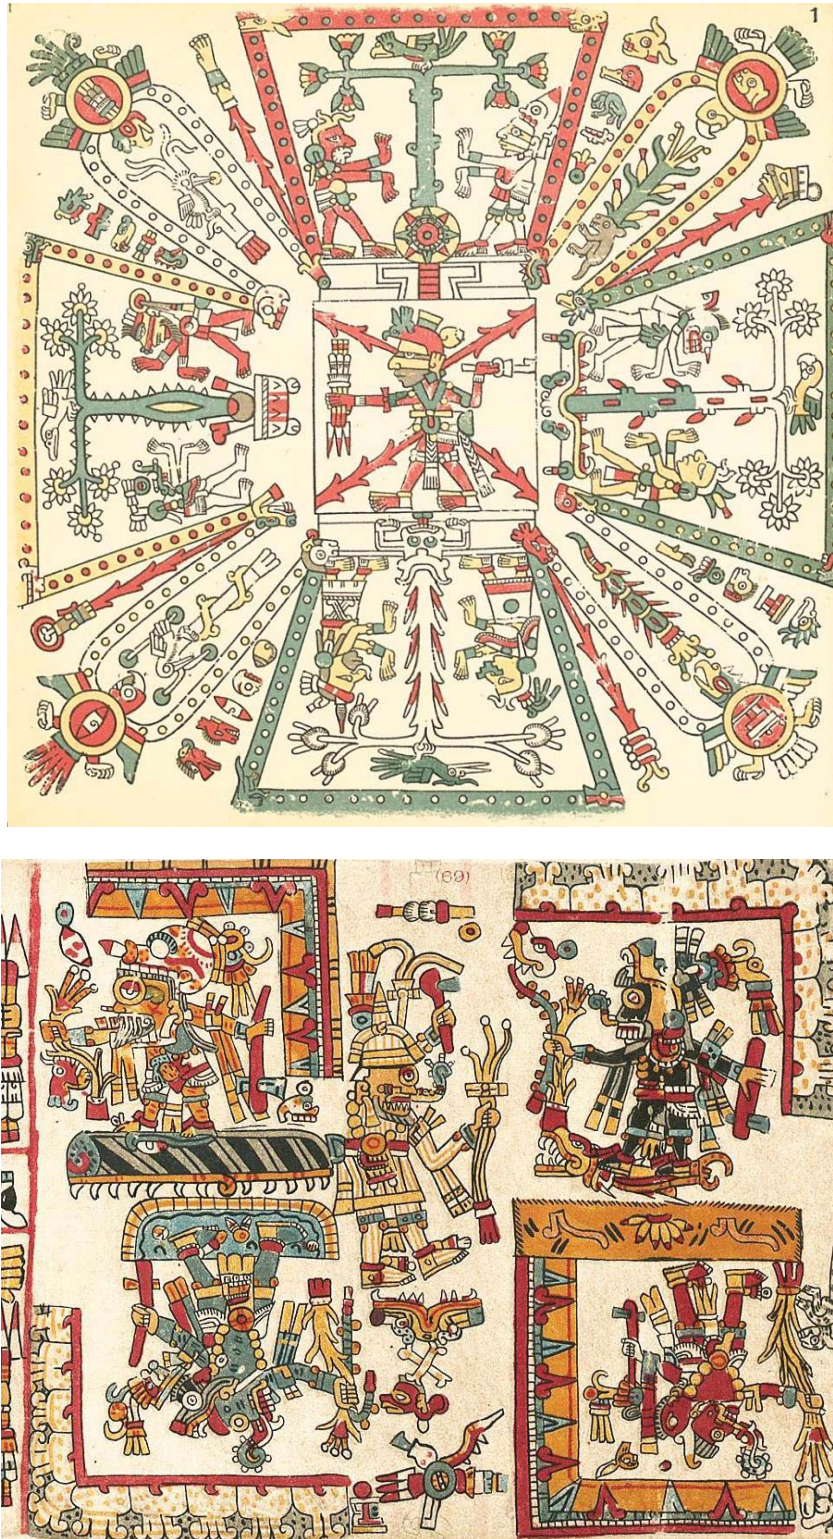 1
(69)